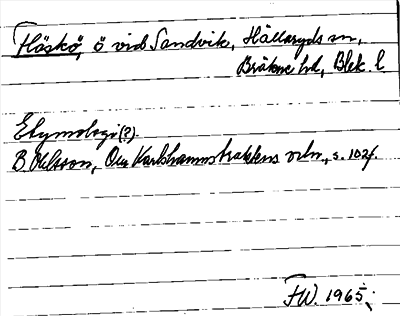 Fläskö, ö vid Sandvik, Hällaryds sn,
Bräkne hd, Blek. l.
Etymologi(?).
B. Olsson, Om Karlshamnstraktens ortn., s. 102f.
FW. 1965.